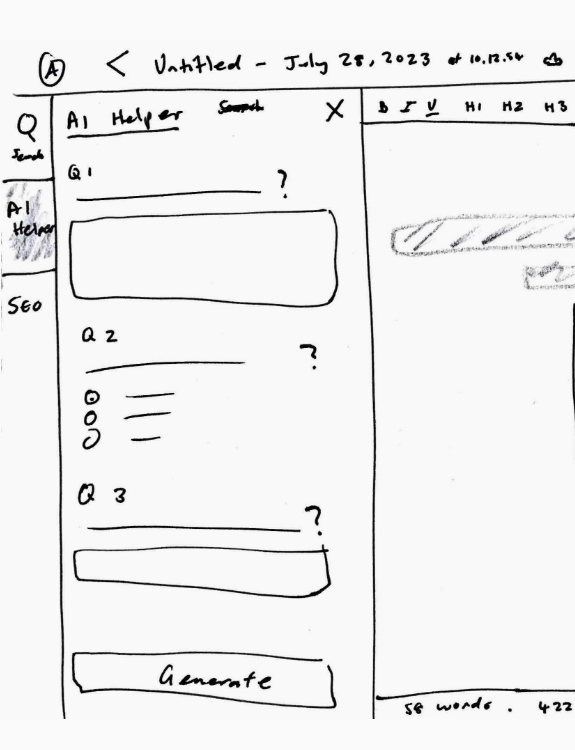 A < Untitled - July 28, 2023 at 10.12.54
Search
AI Helper
SEO
AI Helper X
Q 1
?
Q 2
?
Q 3
?
Generate
B I U H1 H2 H3
58 words . 422